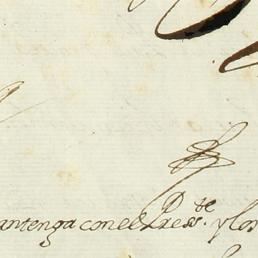 antenga con el Pres.te y los